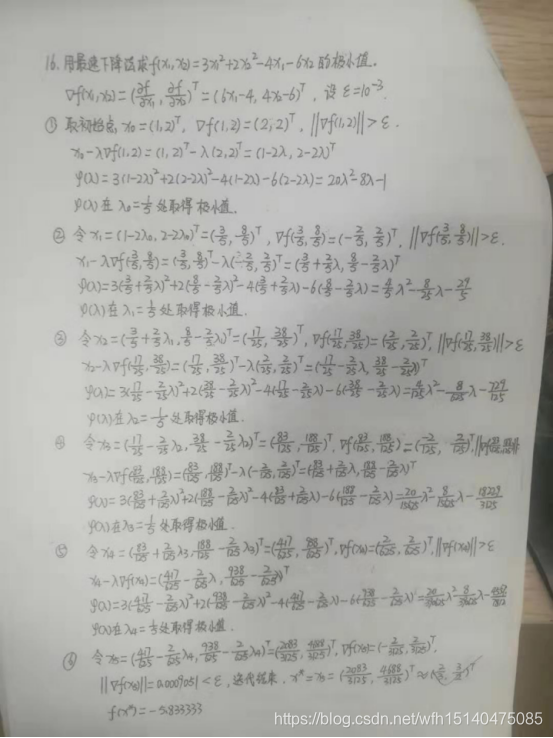 16. 用最速下降法求 f(x₁,x₂)=3x₁²+2x₂²-4x₁-6x₂ 的极小值.
∇f(x₁,x₂)=(∂f/∂x₁, ∂f/∂x₂)ᵀ=(6x₁-4, 4x₂-6)ᵀ, 设 ε=10⁻³.
① 取初始点, x₀=(1,2)ᵀ, ∇f(1,2)=(2,2)ᵀ, ||∇f(1,2)||>ε.
x₀-λ∇f(1,2)=(1,2)ᵀ-λ(2,2)ᵀ=(1-2λ, 2-2λ)ᵀ
φ(λ)=3(1-2λ)²+2(2-2λ)²-4(1-2λ)-6(2-2λ)=20λ²-8λ-1
φ(λ)在 λ₀=1/5 处取得极小值.
② 令 x₁=(1-2λ₀, 2-2λ₀)ᵀ=(3/5, 8/5)ᵀ, ∇f(3/5, 8/5)=(-2/5, 2/5)ᵀ, ||∇f(3/5, 8/5)||>ε.
x₁-λ∇f(3/5, 8/5)=(3/5, 8/5)ᵀ-λ(-2/5, 2/5)ᵀ=(3/5+2/5λ, 8/5-2/5λ)ᵀ
φ(λ)=3(3/5+2/5λ)²+2(8/5-2/5λ)²-4(3/5+2/5λ)-6(8/5-2/5λ)=4/5λ²-8/25λ-29/5
φ(λ)在 λ₁=1/5 处取得极小值.
③ 令 x₂=(3/5+2/5λ₁, 8/5-2/5λ₁)ᵀ=(17/25, 38/25)ᵀ, ∇f(17/25, 38/25)=(2/25, 2/25)ᵀ, ||∇f(17/25, 38/25)||>ε
x₂-λ∇f(17/25, 38/25)=(17/25, 38/25)ᵀ-λ(2/25, 2/25)ᵀ=(17/25-2/25λ, 38/25-2/25λ)ᵀ
φ(λ)=3(17/25-2/25λ)²+2(38/25-2/25λ)²-4(17/25-2/25λ)-6(38/25-2/25λ)=4/125λ²-8/625λ-729/125
φ(λ)在 λ₂=1/5 处取得极小值.
④ 令 x₃=(17/25-2/25λ₂, 38/25-2/25λ₂)ᵀ=(83/125, 188/125)ᵀ, ∇f(83/125, 188/125)=(-2/125, 2/125)ᵀ,
x₃-λ∇f(83/125, 188/125)=(83/125, 188/125)ᵀ-λ(-2/125, 2/125)ᵀ=(83/125+2/125λ, 188/125-2/125λ)ᵀ
φ(λ)=3(83/125+2/125λ)²+2(188/125-2/125λ)²-4(83/125+2/125λ)-6(188/125-2/125λ)=20/15625λ²-8/15625λ-18229/3125
φ(λ)在 λ₃=1/5 处取得极小值.
⑤ 令 x₄=(83/125+2/125λ₃, 188/125-2/125λ₃)ᵀ=(417/625, 938/625)ᵀ, ∇f(x₄)=(2/625, 2/625)ᵀ, ||∇f(x₄)||>ε
x₄-λ∇f(x₄)=(417/625-2/625λ, 938/625-2/625λ)ᵀ
φ(λ)=3(417/625-2/625λ)²+2(938/625-2/625λ)²-4(417/625-2/625λ)-6(938/625-2/625λ)=
φ(λ)在 λ₄=1/5 处取得极小值.
⑥ 令 x₅=(417/625-2/625λ₄, 938/625-2/625λ₄)ᵀ=(2083/3125, 4688/3125)ᵀ, ∇f(x₅)=(-2/3125, 2/3125)ᵀ,
||∇f(x₅)||=0.0009051<ε, 迭代结束. x*=x₅=(2083/3125, 4688/3125)ᵀ≈(2/3, 3/2)ᵀ
f(x*)=-5.833333
https://blog.csdn.net/wfh15140475085